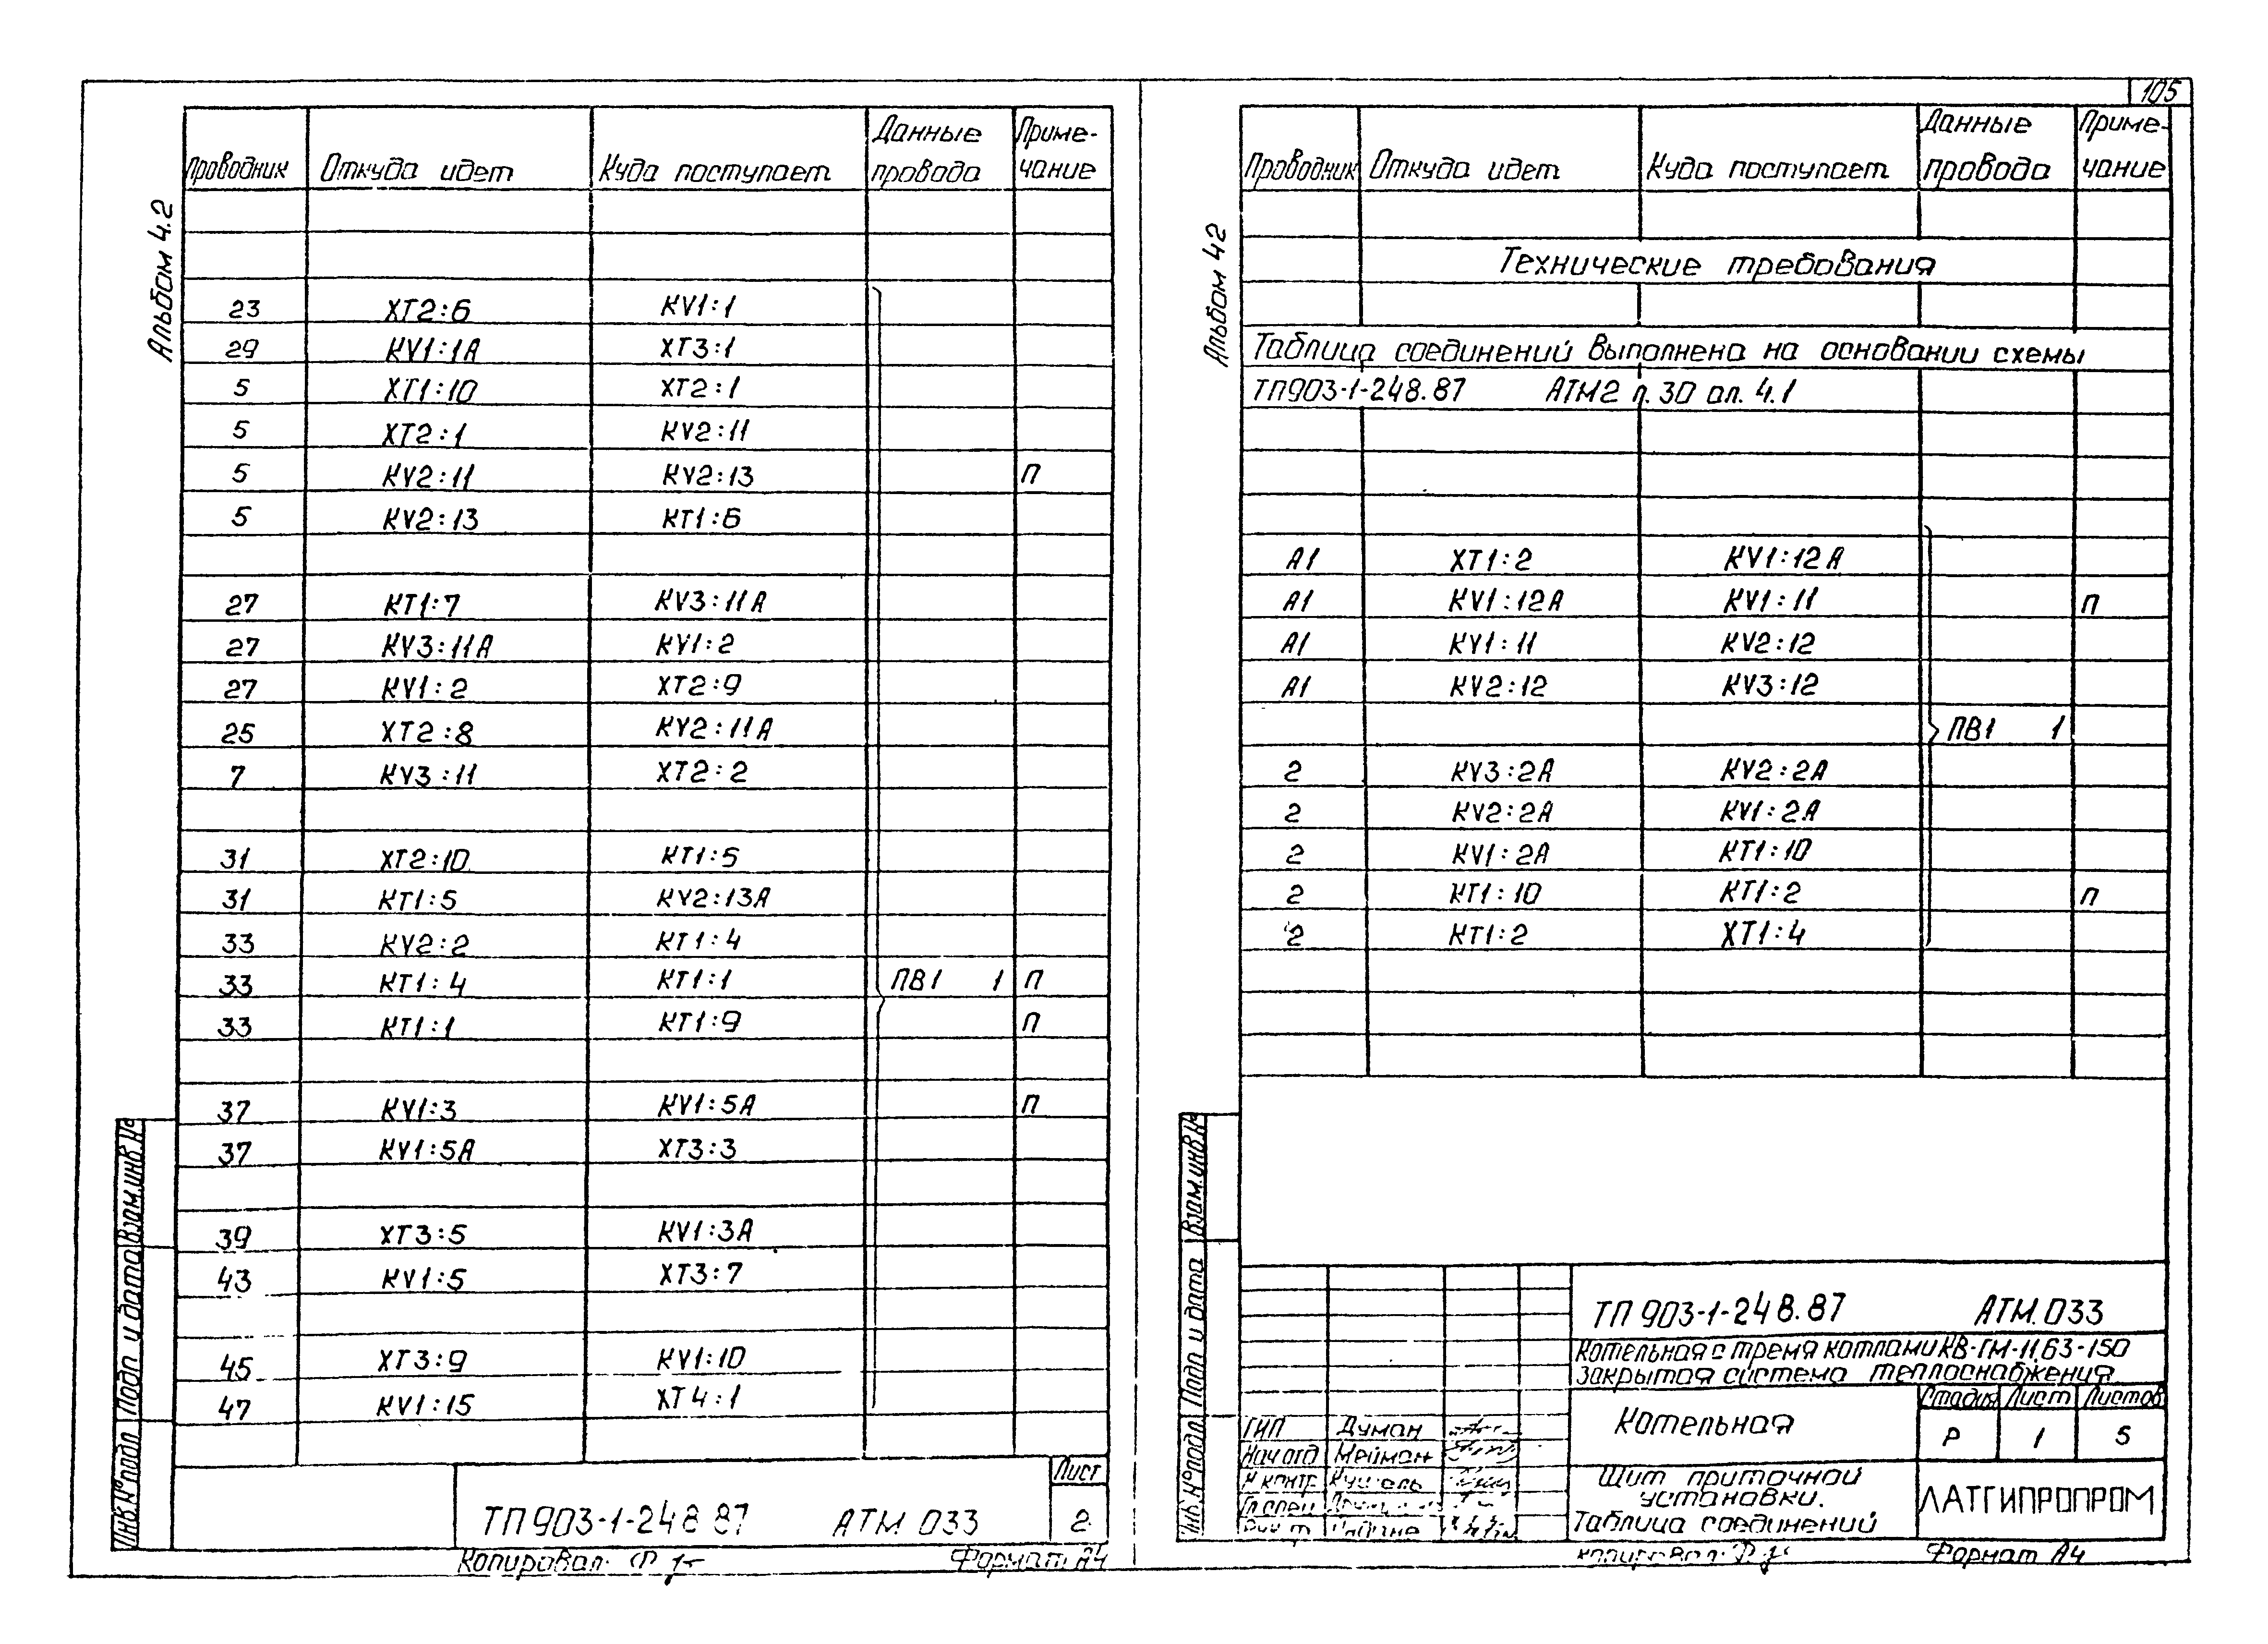 105
Альбом 4.2
Проводник Откуда идет Куда поступает Данные провода Приме-чание
23 ХТ2:6 KV1:1
29 KV1:1А ХТ3:1
5 ХТ1:10 ХТ2:1
5 ХТ2:1 KV2:11
5 KV2:11 KV2:13 П
5 KV2:13 КТ1:6
27 КТ1:7 KV3:11А
27 KV3:11А KV1:2
27 KV1:2 ХТ2:9
25 ХТ2:8 KV2:11А
7 KV3:11 ХТ2:2
31 ХТ2:10 КТ1:5
31 КТ1:5 KV2:13А
33 KV2:2 КТ1:4
33 КТ1:4 КТ1:1 ПВ1 1 П
33 КТ1:1 КТ1:9 П
37 KV1:3 KV1:5А П
37 KV1:5А ХТ3:3
39 ХТ3:5 KV1:3А
43 KV1:5 ХТ3:7
45 ХТ3:9 KV1:10
47 KV1:15 ХТ4:1
Инв.№подл Подп и дата Взам.инв.№
ТП 903-1-248 87 АТМ 033
Лист
2
Копировал: Формат А4
Альбом 4.2
Проводник Откуда идет Куда поступает Данные провода Приме-чание
Технические требования
Таблица соединений выполнена на основании схемы
ТП903-1-248.87 АТМ2 л.30 ал. 4.1
А1 ХТ1:2 KV1:12А
А1 KV1:12А KV1:11 П
А1 KV1:11 KV2:12
А1 KV2:12 KV3:12
ПВ1 1
2 KV3:2А KV2:2А
2 KV2:2А KV1:2А
2 KV1:2А КТ1:10
2 КТ1:10 КТ1:2 П
2 КТ1:2 ХТ1:4
Инв.№подл Подп и дата Взам.инв.№
ТП 903-1-248.87 АТМ.033
Котельная с тремя котлами КВ-ГМ-11,63-150
Закрытая система теплоснабжения
Котельная
Стадия Лист Листов
Р 1 5
ГИП Думан
Нач отд Мейман
Н контр
Гл спец
Щит приточной
установки.
Таблица соединений
ЛАТГИПРОПРОМ
Копировал: Формат А4